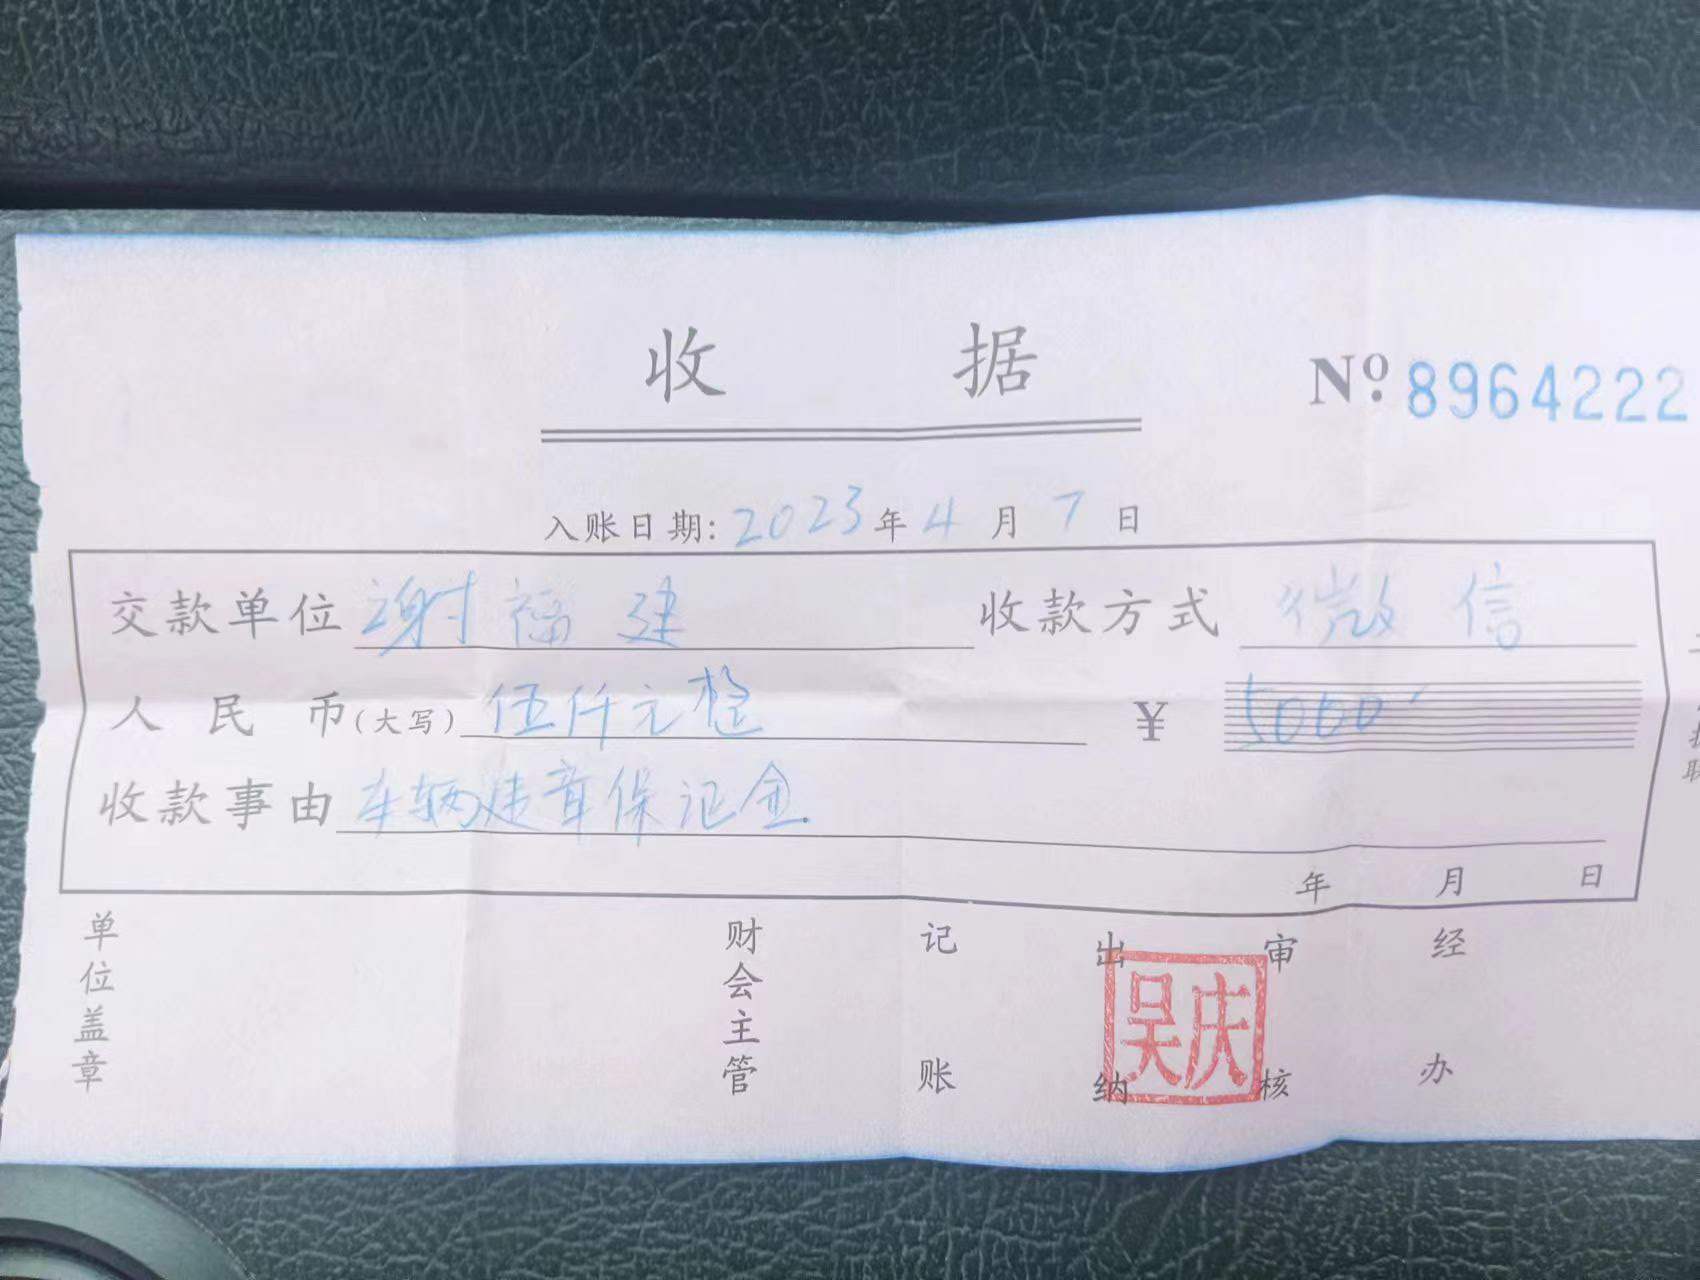 收 据
Nº 8964222
入账日期: 2023 年 4 月 7 日
交款单位 谢福建 收款方式 微信
人民币(大写) 伍仟元整 ¥ 5000
收款事由 车辆违章保证金
年 月 日
单位盖章 财会主管 记账 出纳 审核 经办
吴庆